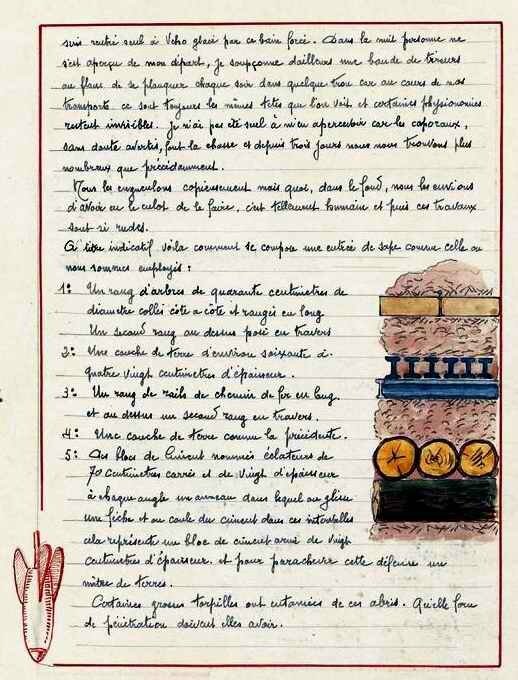 suis rentré seul à Velro glacé par ce bain forcé. Dans la nuit personne ne
s'est aperçu de mon départ, je soupçonne d'ailleurs une bande de tireurs
au flanc de se planquer chaque soir dans quelque trou car au cours de nos
transports ce sont toujours les mêmes têtes que l'on voit et certaines physionomies
restent invisibles. Je n'ai pas été seul à m'en apercevoir car les caporaux,
sans doute avertis, font la chasse et depuis trois jours nous nous trouvons plus
nombreux que précédemment.
Nous les engueulons copieusement mais quoi, dans le fond, nous les envions
d'avoir eu le culot de le faire, c'est tellement humain et puis ces travaux
sont si rudes.
A titre indicatif voila comment se compose une entrée de sape comme celle ou
nous sommes employés :
1: Un rang d'arbres de quarante centimetres de
diametre collés côte a côte et rangés en long
Un second rang au dessus posé en travers
2: Une couche de terre d'environ soixante à
quatre vingt centimetres d'épaisseur.
3: Un rang de rails de chemin de fer en long.
et au dessus un second rang en travers.
4: Une couche de terre comme la précédente.
5: Des blocs de ciment nommés éclateurs de
70 centimetres carrés et de vingt d'épaisseur
à chaque angle un anneau dans lequel on glisse
une fiche et on coule du ciment dans ces
cela représente un bloc de ciment armé de vingt
centimetres d'épaisseur. et pour parachever cette défense un
mètre de terres.
Certaines grosses torpilles ont entamées de ces abris. Quelle force
de pénétration doivent elles avoir.